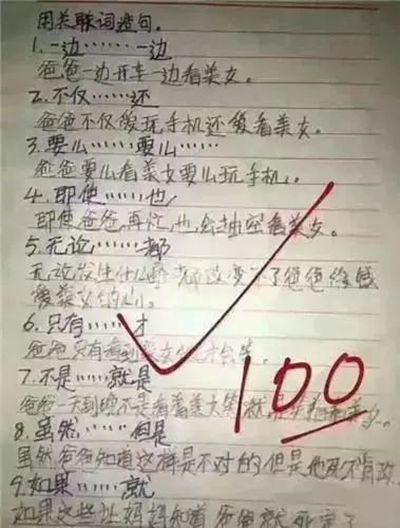 用关联词造句。
1.一边……一边
爸爸一边开车一边看美女。
2.不仅……还
爸爸不仅爱玩手机还爱看美女。
3.要么……要么……
爸爸要么看美女要么玩手机。
4.即使……也
即使爸爸再忙,也会抽空看美女。
5.无论……都
无论发生什么都改变不了爸爸
爱美女的心。
6.只有……才
爸爸只有看到美女才会笑。
7.不是……就是
爸爸一天到晚不是看着美女笑就是
8.虽然……但是
虽然爸爸知道这样是不对的但是他
9.如果……就
如果这些让妈妈知道爸爸就死定了
100